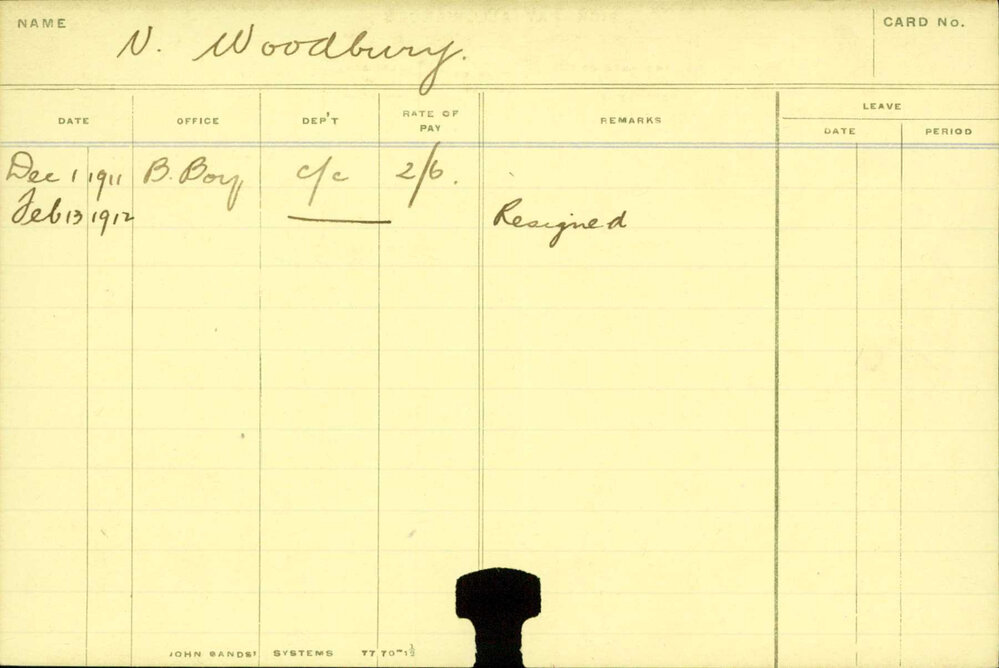 NAME
N. Woodbury.
CARD No.
DATE OFFICE DEP'T RATE OF PAY REMARKS LEAVE
DATE PERIOD
Dec 1 1911 B. Boy c/c 2/6.
Feb 13 1912 Resigned
JOHN SANDS' SYSTEMS